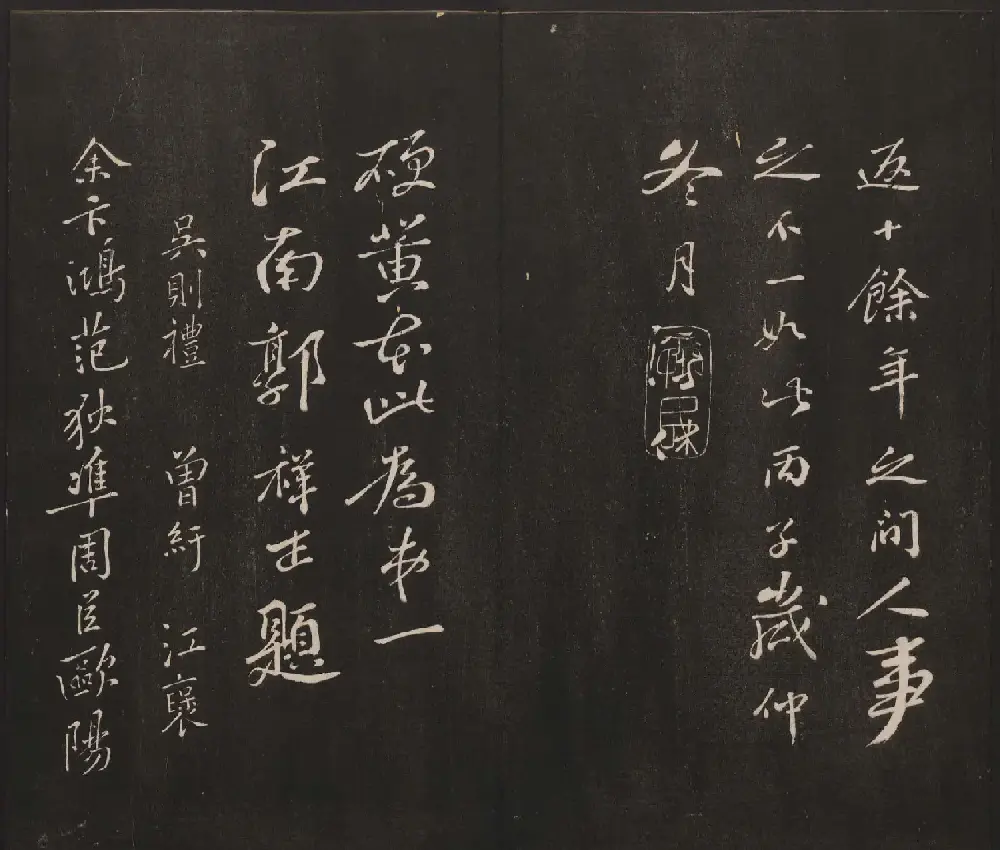 返十餘年之間人事
之不一如此丙子歲仲
冬月
硬黄本此為第一
江南郭祥正題
吳則禮 曾紆 江褒
余卞鴻范狄準周臣歐陽